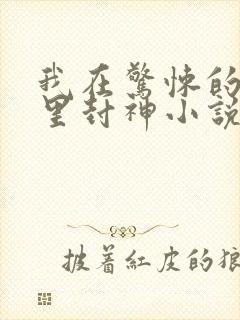 我在驚悚的
里封神小説
披着紅皮的狼